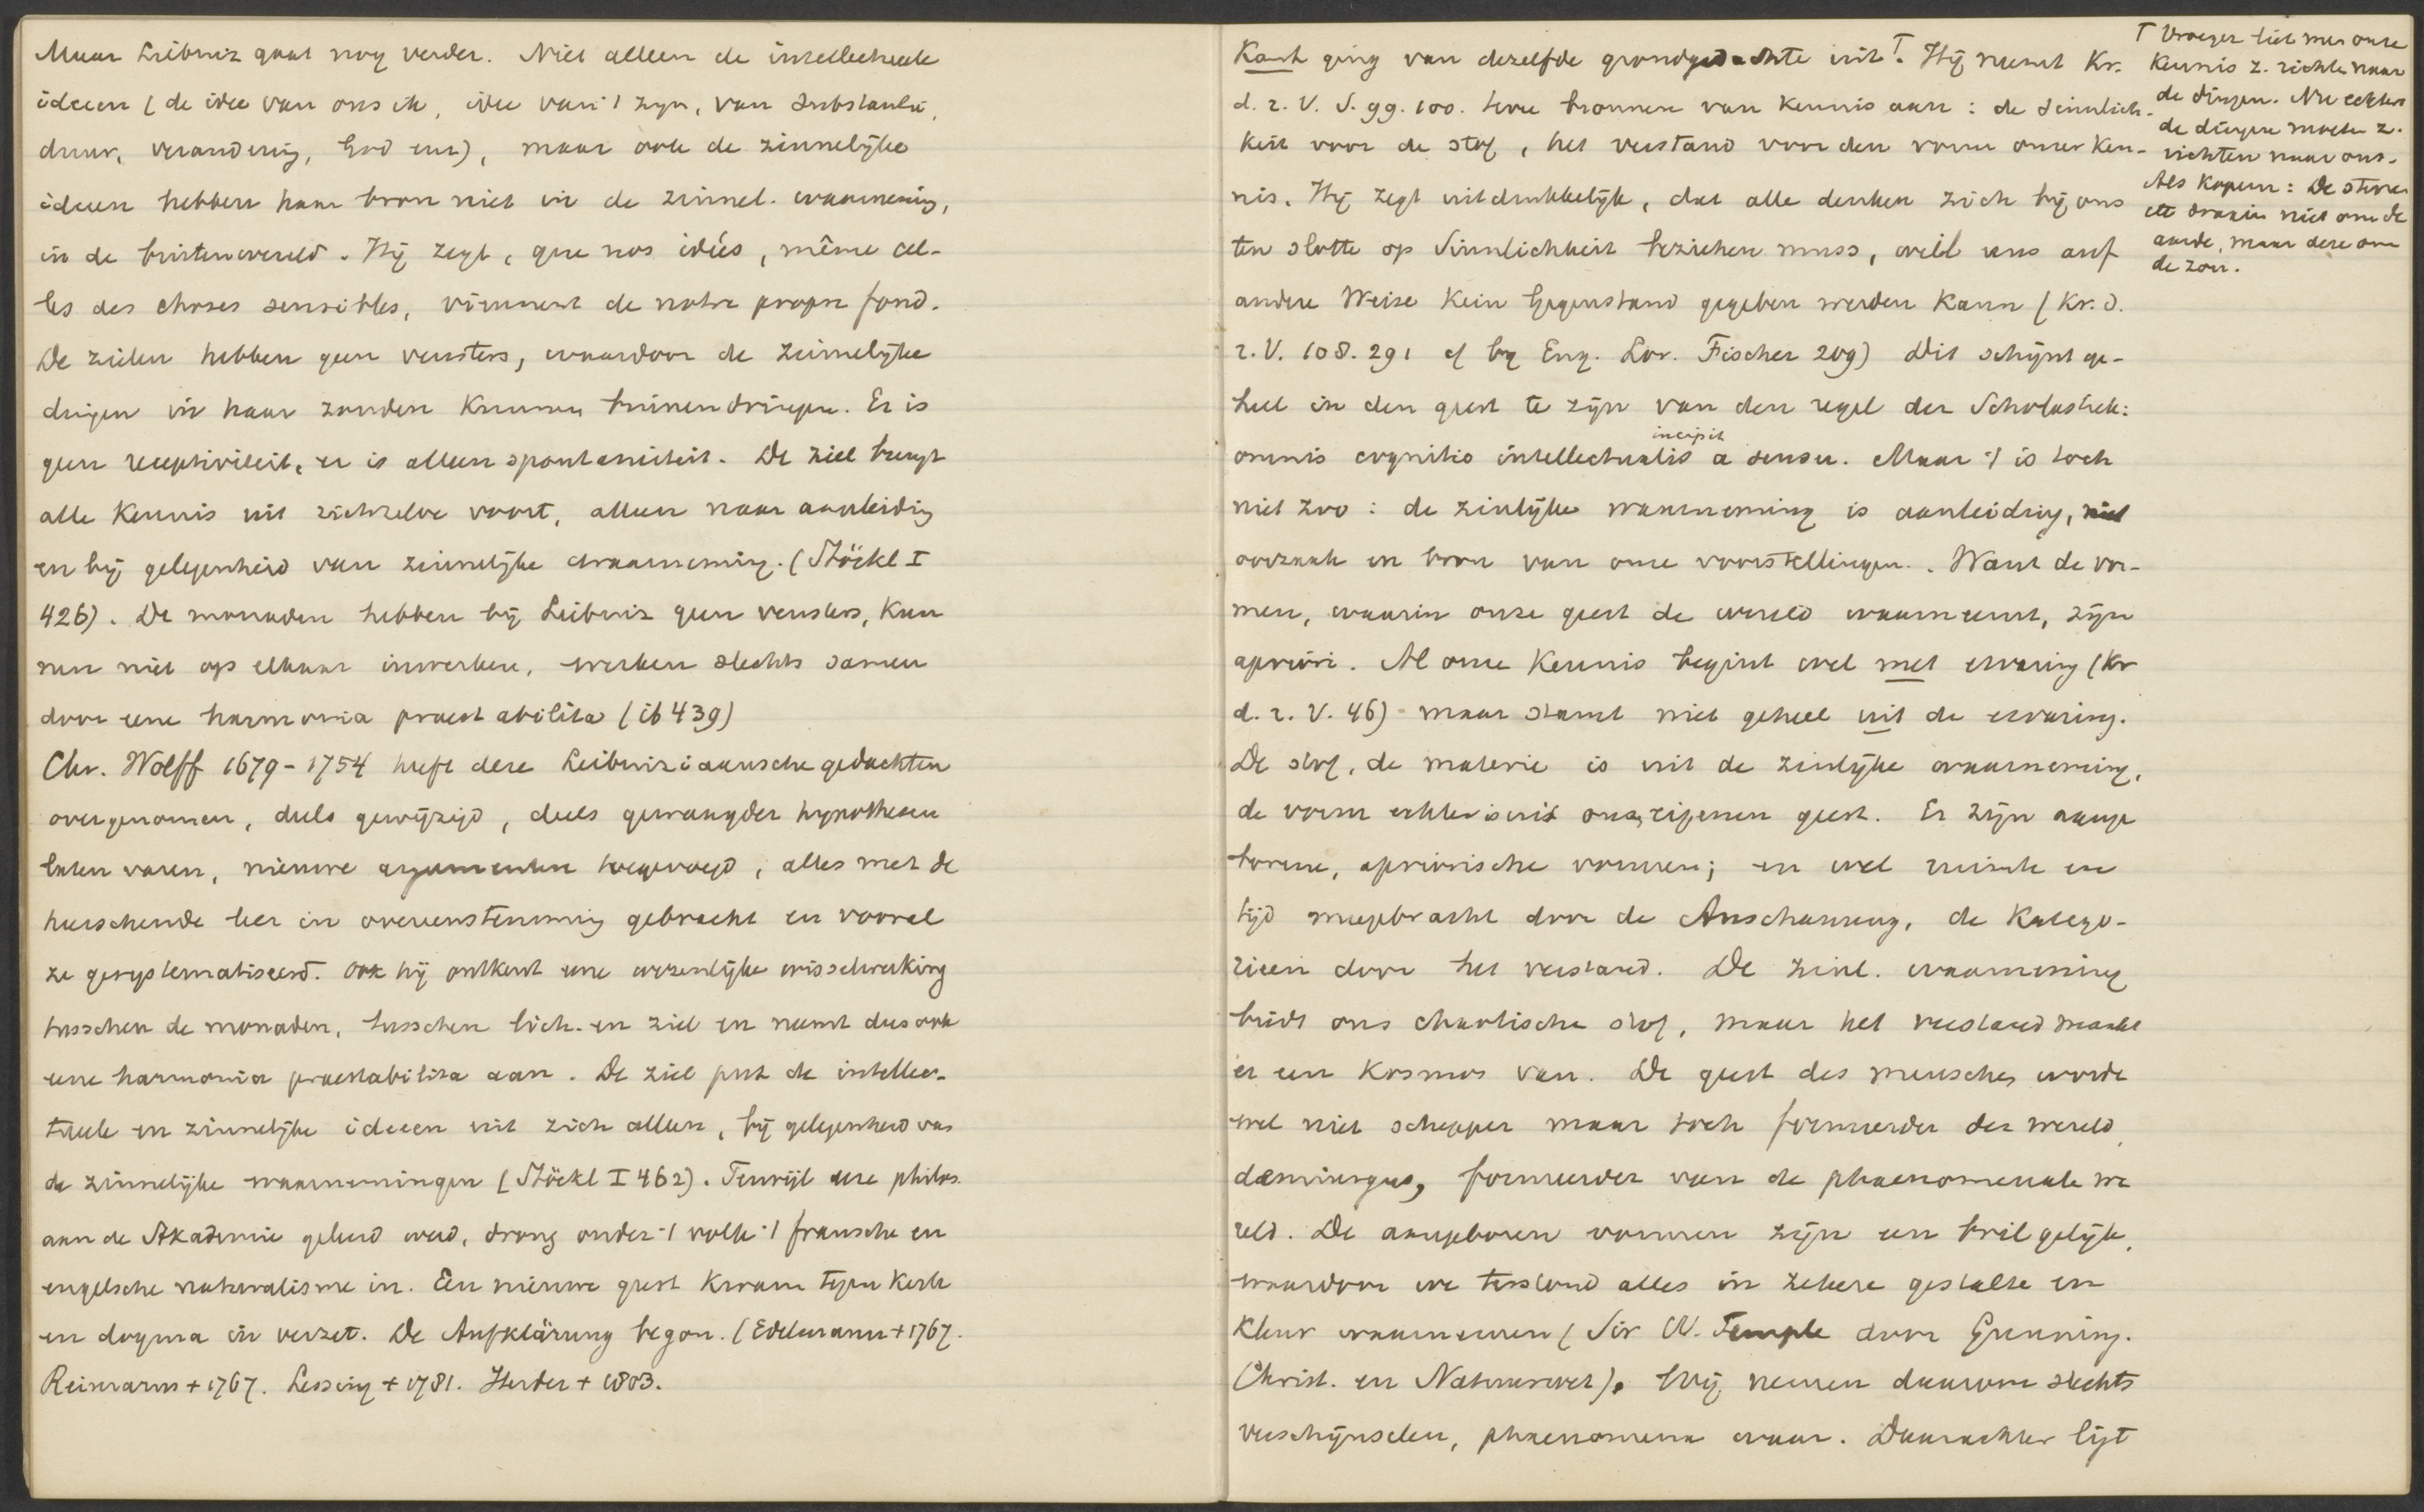 Maar Leibniz gaat nog verder. Niet alleen de intellectueele
ideeen (de idee van ons ik, idee van 't zijn, van substantie,
duur, verandering, God enz), maar ook de zinnelijke
ideeen hebben haar bron niet in de zinnel. waarneming,
in de buitenwereld. Hij zegt, que nos idées, même cel-
les des choses sensibles, viennent de notre propre fond.
De zielen hebben geen vensters, waardoor de zinnelijke
dingen in haar zouden kunnen binnendringen. Er is
geen receptiviteit, er is alleen spontaneiteit. De ziel brengt
alle kennis uit zichzelve voort, alleen naar aanleiding
en bij gelegenheid van zinnelijke waarneming. (Stöckl I
426). De monaden hebben bij Leibniz geen vensters, kun
nen niet op elkaar inwerken, werken slechts samen
door eene harmonia praestabilita (ib 439)
Chr. Wolff 1679-1754 heeft deze Leibniziaansche gedachten
overgenomen, deels gewijzigd, deels gewaagder hypothesen
laten varen, nieuwe argumenten toegevoegd, alles met de
heerschende leer in overeenstemming gebracht en vooral
ze gesystematiseerd. Ook hij ontkent eene wezenlijke wisselwerking
tusschen de monaden, tusschen lich. en ziel en neemt dus ook
eene harmonia praestabilita aan. De ziel put de intellec-
tueele en zinnelijke ideeen uit zich alleen, bij gelegenheid van
de zinnelijke waarnemingen (Stöckl I 462). Terwijl deze philos.
aan de Akademie geleerd werd, drong onder 't volk 't fransche en
engelsche naturalisme in. Een nieuwe geest kwam tegen kerk
en dogma in verzet. De Aufklärung begon. (Edelmann + 1767.
Reimarus + 1767. Lessing + 1781. Herder + 1803.
Kant ging van dezelfde grondgedachte uit. T Hij neemt Kr.
d. r. V. S. 99. 100. twee bronnen van kennis aan: de Sinnlich-
keit voor de stof, het verstand voor den vorm onzer ken-
nis. Hij zegt uitdrukkelijk, dat alle denken zich bij ons
ten slotte op Sinnlichkeit beziehen muss, weil uns auf
andere Weise kein Gegenstand gegeben werden kann (Kr. d.
r. V. 108. 291 cf bij Eug. Lor. Fischer 209) Dit schijnt ge-
heel in den geest te zijn van den regel der Scholastiek:
omnis cognitio intellectualis incipit a sensu. Maar 't is toch
niet zoo: de zinlijke waarneming is aanleiding, niet
oorzaak en bron van onze voorstellingen. Want de vor-
men, waarin onze geest de wereld waarneemt, zijn
apriori. Al onze kennis begint wel met ervaring (Kr
d. r. V. 46) maar stamt niet geheel uit de ervaring.
De stof, de materie is uit de zinlijke waarneming,
de vorm echter is uit onze eigenen geest. Er zijn aange
borene, apriorische vormen; en wel ruimte en
tijd meegebracht door de Anschauung, de Katego-
rieen door het verstand. De zinl. waarneming
biedt ons chaotische stof, maar het verstand maakt
er een Kosmos van. De geest des menschen wordt
wel niet schepper maar toch formeerder der wereld,
demiurgus, formeerder van de phaenomenale we
reld. De aangeboren vormen zijn een bril gelijk,
waardoor we tersstond alles in zekere gestalte en
kleur waarnemen (Sir W. Temple door Gunning.
Christ. en Natuurwet). Wij nemen daarom slechts
verschijnselen, phaenomena waar. Daarachter ligt
T Vroeger liet men onze
kennis z. richten naar
de dingen. Nu echter
de dingen moeten z.
richten naar ons.
Als Kopern: De sterren
etc draaien niet om de
aarde, maar deze om
de zon.